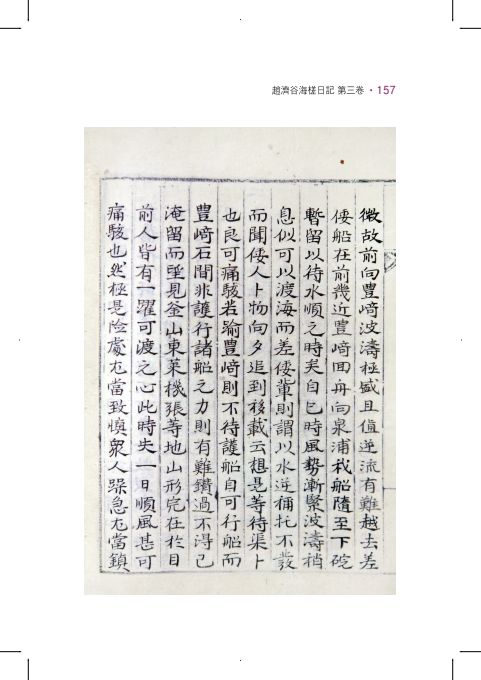 趙濟谷海槎日記 第三卷 · 157
微故前向豊﨑波濤極盛且值逆流有難越去差
倭船在前幾近豊﨑回舟向泉浦我船隨至下碇
暫留以待水順之時矣自巳時風勢漸緊波濤稍
息似可以渡海而差倭輩則謂以水逆稱托不發
而聞倭人卜物向夕追到移載云想是等待渠卜
也良可痛駭若踰豊﨑則不待護船自可行船而
豊﨑石間非護行諸船之力則有難鑽過不得已
淹留而望見釜山東萊機張等地山形完在於目
前人皆有一躍可渡之心此時失一日順風甚可
痛駭也然極是險處尤當致愼衆人躁急尤當鎭